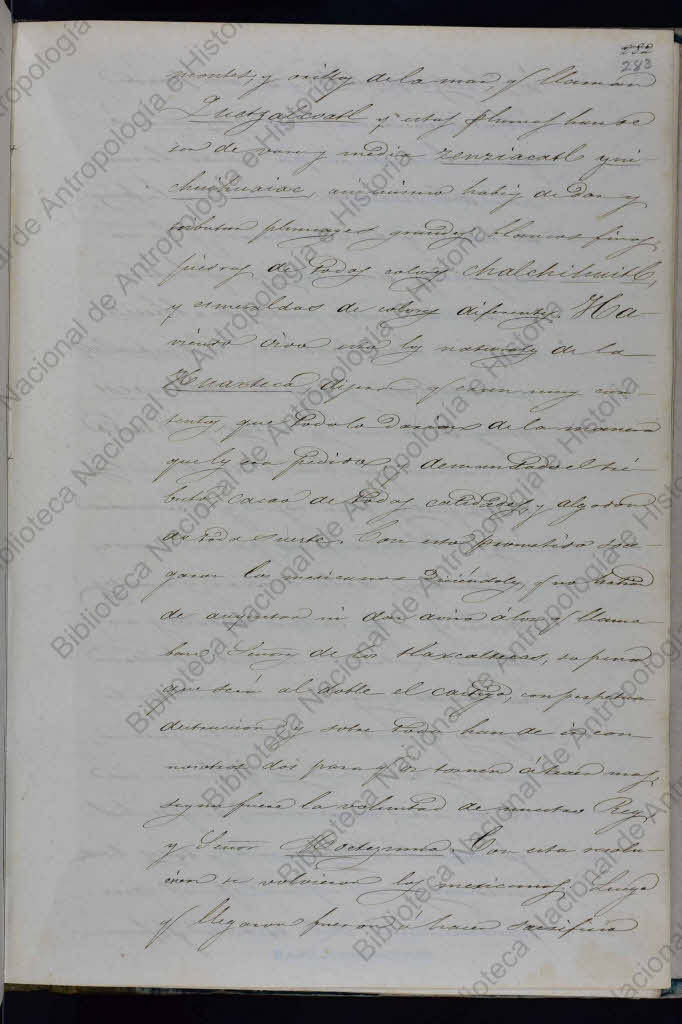 282
283
montes, y orillas de la mar, q̃ llaman
Quetzaltototl y estas plumas han de
ser de vara y media zenziacatl yni
chuihuaiac, asi mismo habeis de dar y
tributar plumages grandes, blancos finos,
piedras de todas colores Chalchihuitl,
y esmeraldas de colores diferentes. Ha-
viendo oido esto los naturales de la
Huaxteca dijeron q̃ eran muy con-
tentos, que todo lo darian de la manera
que les era pedido y demandado el tri-
buto, cacao de todas calidades, y algodon
de toda suerte. Con esto prometido
los mexicanos diciéndoles, q̃ no
de ni dar aviso á los q̃ llama-
ban Señores de los tlaxcaltecas, so pena
que será al doble el castigo, con perpetua
destruicion, y sobre todo han de ir con
nosotros dos para q̃ os tornen á traer mas,
segun fuere la voluntad de nuestro Rey,
y Señor Moctezuma. Con esta resolu-
cion se volvieron los mexicanos. Luego
q̃ llegaron fueron á hacer sacrificio
Biblioteca Nacional de Antropología e Historia